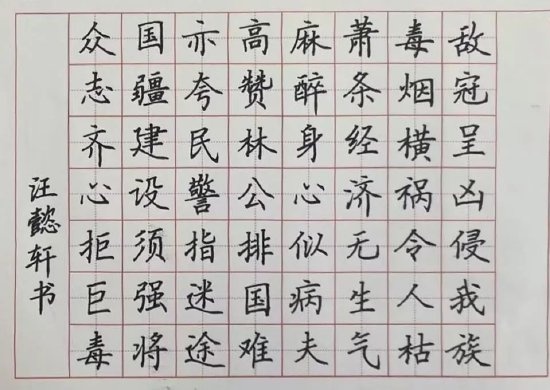 敌冠呈凶侵我族
毒烟横祸令人枯
萧条经济无生气
麻醉身心似病夫
高赞林公排国难
亦夸民警指迷途
国疆建设须强将
众志齐心拒巨毒
汪懿轩书